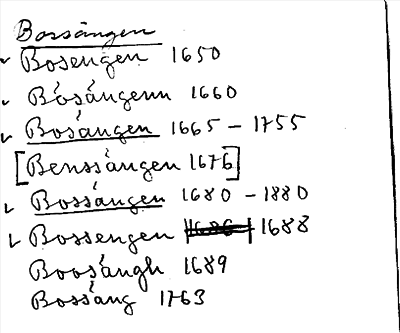 Bossängen
Bosengen 1650
Bosångenn 1660
Bosången 1665 – 1755
[Benssången 1676]
Bossången 1680 – 1880
Bossengen 1688
Boosångh 1689
Bossång 1763